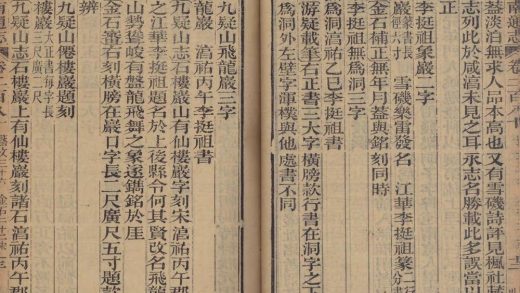 南通志 卷二百八
蓋淡泊無求人品本高也又有雪磯詩評見楓社
志列此於咸淳未見之耳永志名勝載此多誤當以
正
李挺祖象巖二字
巖 篆書長 雪磯樂雷發名 江華李挺祖篆二行
金石補正無年月蓋與銘刻同時
李挺祖無爲洞三字
無爲洞淳祐乙巳李挺祖書
游疑載筆石正書三大字橫牓款行書在洞字之下
爲洞外左壁字渾樸與他處書不同
九疑山飛龍巖三字
龍巖 淳祐丙午李挺祖書
九疑山志石樓巖山有仙樓巖字刻宋淳祐丙午
之江華李挺祖題名於上後縣令何其賢改名飛龍
山勢聳峻有盤龍飛舞之象遂鐫銘於厓
金石審右刻橫牓在巖口字長二尺廣尺五寸題款
辨
九疑山僊樓巖題刻
樓巖 大正書每字長三尺廣二尺
九疑山志石樓巖上有仙樓巖刻諧石淳祐丙午郡